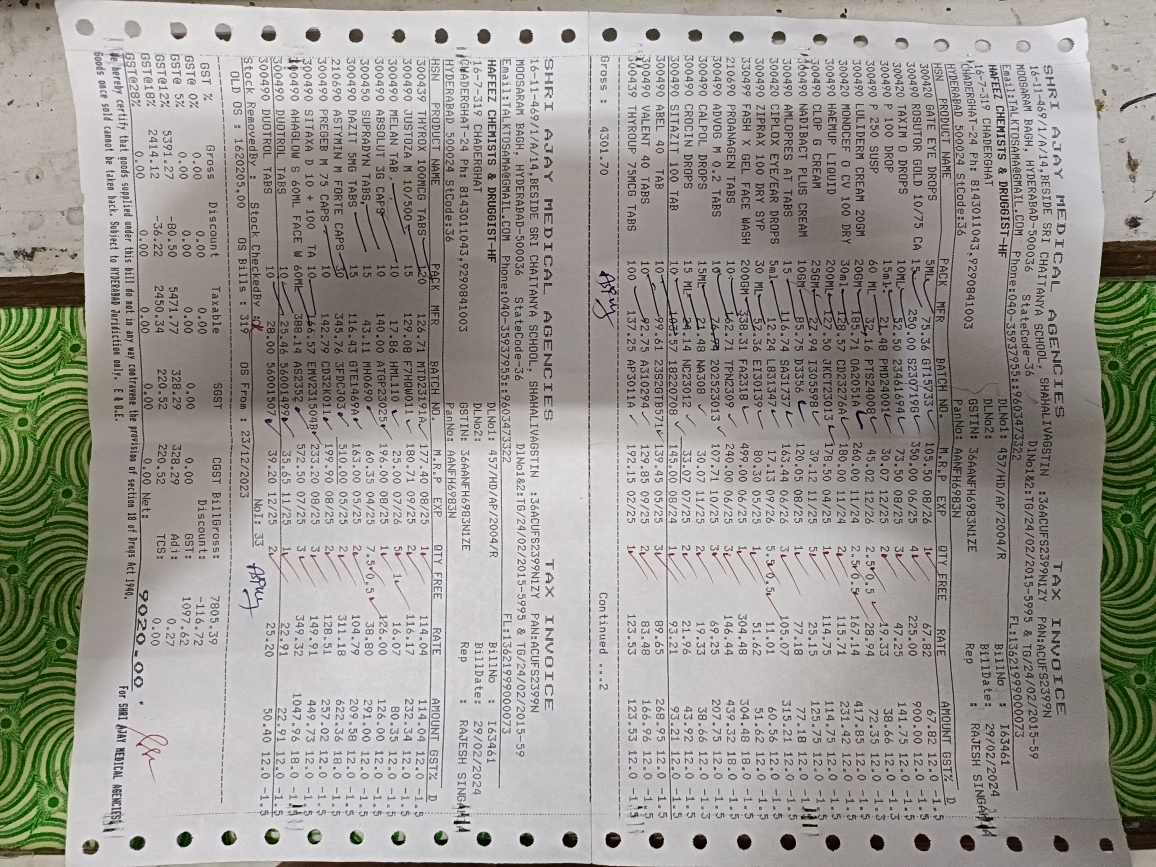 SHRI AJAY MEDICAL AGENCIES TAX INVOICE
16-11-469/1/A/14,BESIDE SRI CHAITANYA SCHOOL, SHAHALIVAGSTIN :36ACUFS2399N1ZY PAN:ACUFS2399N
MOOSARAM BAGH, HYDERABAD-500036 StateCode-36 DlNo1&2:TG/24/02/2015-5995 & TG/24/02/2015-59
Email:TALKTOSAMA@GMAIL.COM Phone:040-35937955::9603473322 FL:13621999000073
HAFEEZ CHEMISTS & DRUGGIST-HF DLNo1: 457/HD/AP/2004/R BillNo : I63461
16-7-319 CHADERGHAT DLNo2: BillDate: 29/02/2024
CHADERGHAT-24 Ph: 8143011043,9290841003 GSTIN: 36AANFH6983N1ZE Rep : RAJESH SINGH
HYDERABAD 500024 StCode:36 PanNo: AANFH6983N
HSN PRODUCT NAME PACK MFR BATCH NO. M.R.P EXP QTY FREE RATE AMOUNT GST% D
300420 GATE EYE DROPS 5ML 75.36 GT15733 105.50 08/26 1 67.82 67.82 12.0 -1.5
300490 ROSUTOR GOLD 10/75 CA 15 250.00 350.00 06/25 4 225.00 900.00 12.0 -1.5
300420 TAXIM O DROPS 10ML 52.50 23461694 73.50 08/25 3 47.25 141.75 12.0 -1.5
300490 P 100 DROP 15ml 21.48 PMD24001 30.07 12/25 2 19.33 38.66 12.0 -1.3
300490 P 250 SUSP 60 ML 32.16 PTS24008 45.02 12/26 2.5 0.5 28.94 72.35 12.0 -1.5
300490 LULIDERM CREAM 20GM 20GM 185.71 OA2051A 260.00 11/24 2.5 0.5 167.14 417.85 12.0 -1.5
300420 MONOCEF O CV 100 DRY 30ml 128.57 180.00 11/24 2 115.71 231.42 12.0 -1.5
300490 HAEMUP LIQUID 200ML JKCT23013 178.50 04/25 1 114.75 114.75 12.0 -1.5
300490 CLOP G CREAM 25GM 27.94 39.12 11/25 5 25.15 125.75 12.0 -1.5
300490 NADIBACT PLUS CREAM 10GM 85.75 120.05 08/25 1 77.18 77.18 12.0 -1.5
300490 AMLOPRES AT TABS 15 SA31737 163.44 06/26 3 105.07 315.21 12.0 -1.5
300420 CIPLOX EYE/EAR DROPS 5ml 12.24 LB31347 17.13 05/26 5.5 0.5 11.01 60.56 12.0 -1.5
300490 ZIPRAX 100 DRY SYP 30 ML EI30139 80.30 05/25 1 51.62 51.62 12.0 -1.5
330499 FASH X GEL FACE WASH 200GM 338.31 FA2318 499.00 06/26 1 304.48 304.48 18.0 -1.5
210690 PROANAGEN TABS 10 162.71 TPN2309 240.00 02/25 3 146.44 439.32 18.0 -1.5
300490 ADVOG M 0.2 TABS 20SB3D013 107.71 10/25 3 69.25 207.75 12.0 -1.5
300490 CALPOL DROPS 15ML 21.48 NA308 30.07 11/25 2 19.33 38.66 12.0 -1.3
300490 CROCIN DROPS 15 ML 24.14 NC23012 33.07 07/25 2 21.96 43.92 12.0 -1.5
300490 SITAZIT 100 TAB 10 103.57 18220708 145.00 08/24 1 93.21 93.21 12.0 -1.5
300490 ABEL 40 TAB 10 99.61 23S2BTB571 139.45 05/25 3 89.65 268.95 12.0 -1.5
300490 VALENT 40 TABS 10 92.75 A3102944 129.85 09/25 2 83.48 166.96 12.0 -1.5
300439 THYROUP 75MCG TABS 100 137.25 AP3011A 192.15 02/25 1 123.53 123.53 12.0 -1.5
Gross : 4301.70 Continued...2
SHRI AJAY MEDICAL AGENCIES TAX INVOICE
16-11-469/1/A/14,BESIDE SRI CHAITANYA SCHOOL, SHAHALIVAGSTIN :36ACUFS2399N1ZY PAN:ACUFS2399N
MOOSARAM BAGH, HYDERABAD-500036 StateCode-36 DlNo1&2:TG/24/02/2015-5995 & TG/24/02/2015-59
Email:TALKTOSAMA@GMAIL.COM Phone:040-35937955::9603473322 FL:13621999000073
HAFEEZ CHEMISTS & DRUGGIST-HF DLNo1: 457/HD/AP/2004/R BillNo : I63461
16-7-319 CHADERGHAT DLNo2: BillDate: 29/02/2024
CHADERGHAT-24 Ph: 8143011043,9290841003 GSTIN: 36AANFH6983N1ZE Rep : RAJESH SINGH
HYDERABAD 500024 StCode:36 PanNo: AANFH6983N
HSN PRODUCT NAME PACK MFR BATCH NO. M.R.P EXP QTY FREE RATE AMOUNT GST% D
300439 THYROX 100MCG TABS 120 126.71 MTD2391A 177.40 08/25 1 114.04 114.04 12.0 -1.5
300490 JUSTOZA M 10/500 10 129.08 F7HHW011 180.71 09/25 2 116.17 232.34 12.0 -1.5
300490 MELAN TAB 10 17.86 HML110 25.00 07/26 5 1 16.07 80.35 12.0 -1.5
300490 ABSOLUT 3G CAPS 10 140.00 ATGP23025 196.00 08/25 1 126.00 126.00 12.0 -1.5
300450 SUPRADYN TABS 15 43.11 MH0690 60.35 04/25 7.5 0.5 38.80 291.00 12.0 -1.5
300490 DAZIT 5MG TABS 15 116.43 GTE1469A 163.00 05/25 2 104.79 209.58 12.0 -1.5
210690 ASTYMIN M FORTE CAPS 30 345.76 3FDCJ03 510.00 03/25 2 311.18 622.36 18.0 -1.5
300490 PREGEB M 75 CAPS 10 142.79 CD32K011 199.90 08/25 2 128.51 257.02 12.0 -1.5
300490 SITAXA D 10 + 100 TA 10 166.57 EMV231504B 233.20 08/25 3 149.91 449.73 12.0 -1.5
AHAGLOW S 60ML FACE W 60ML 388.14 AS2335 572.50 07/25 3 349.32 1047.96 18.0 -1.5
300490 DUOTROL TABS 10 25.46 5001499 35.65 11/25 1 22.91 22.91 12.0 -1.5
300490 DUOTROL TABS 10 28.00 5001507 39.20 12/25 2 25.20 50.40 12.0 -1.5
Stock RemovedBy.: Stock CheckedBy: NoI: 33
OLD OS : 162205.00 OS Bills : 319 OS From : 23/12/2023
GST % Gross Discount Taxable SGST CGST BillGross: 7805.39
GST@ 0% 0.00 0.00 0.00 0.00 0.00 Discount: -116.72
GST@ 5% 0.00 0.00 0.00 GST: 1097.62
GST@12% 5391.27 -80.50 5471.77 328.29 328.29 Adj: 0.27
GST@18% 2414.12 -36.22 2450.34 220.52 220.52 TCS: 0.00
GST@28% 0.00 0.00 0.00 0.00 0.00 Net: 9020-00
We hereby certify that goods supplied under this bill do not in any way contravene the provision of section 18 of Drugs Act 1940.
Goods once sold cannot be taken back. Subject to HYDERABAD Juridiction only. E & O.E. For SHRI AJAY MEDICAL AGENCIES